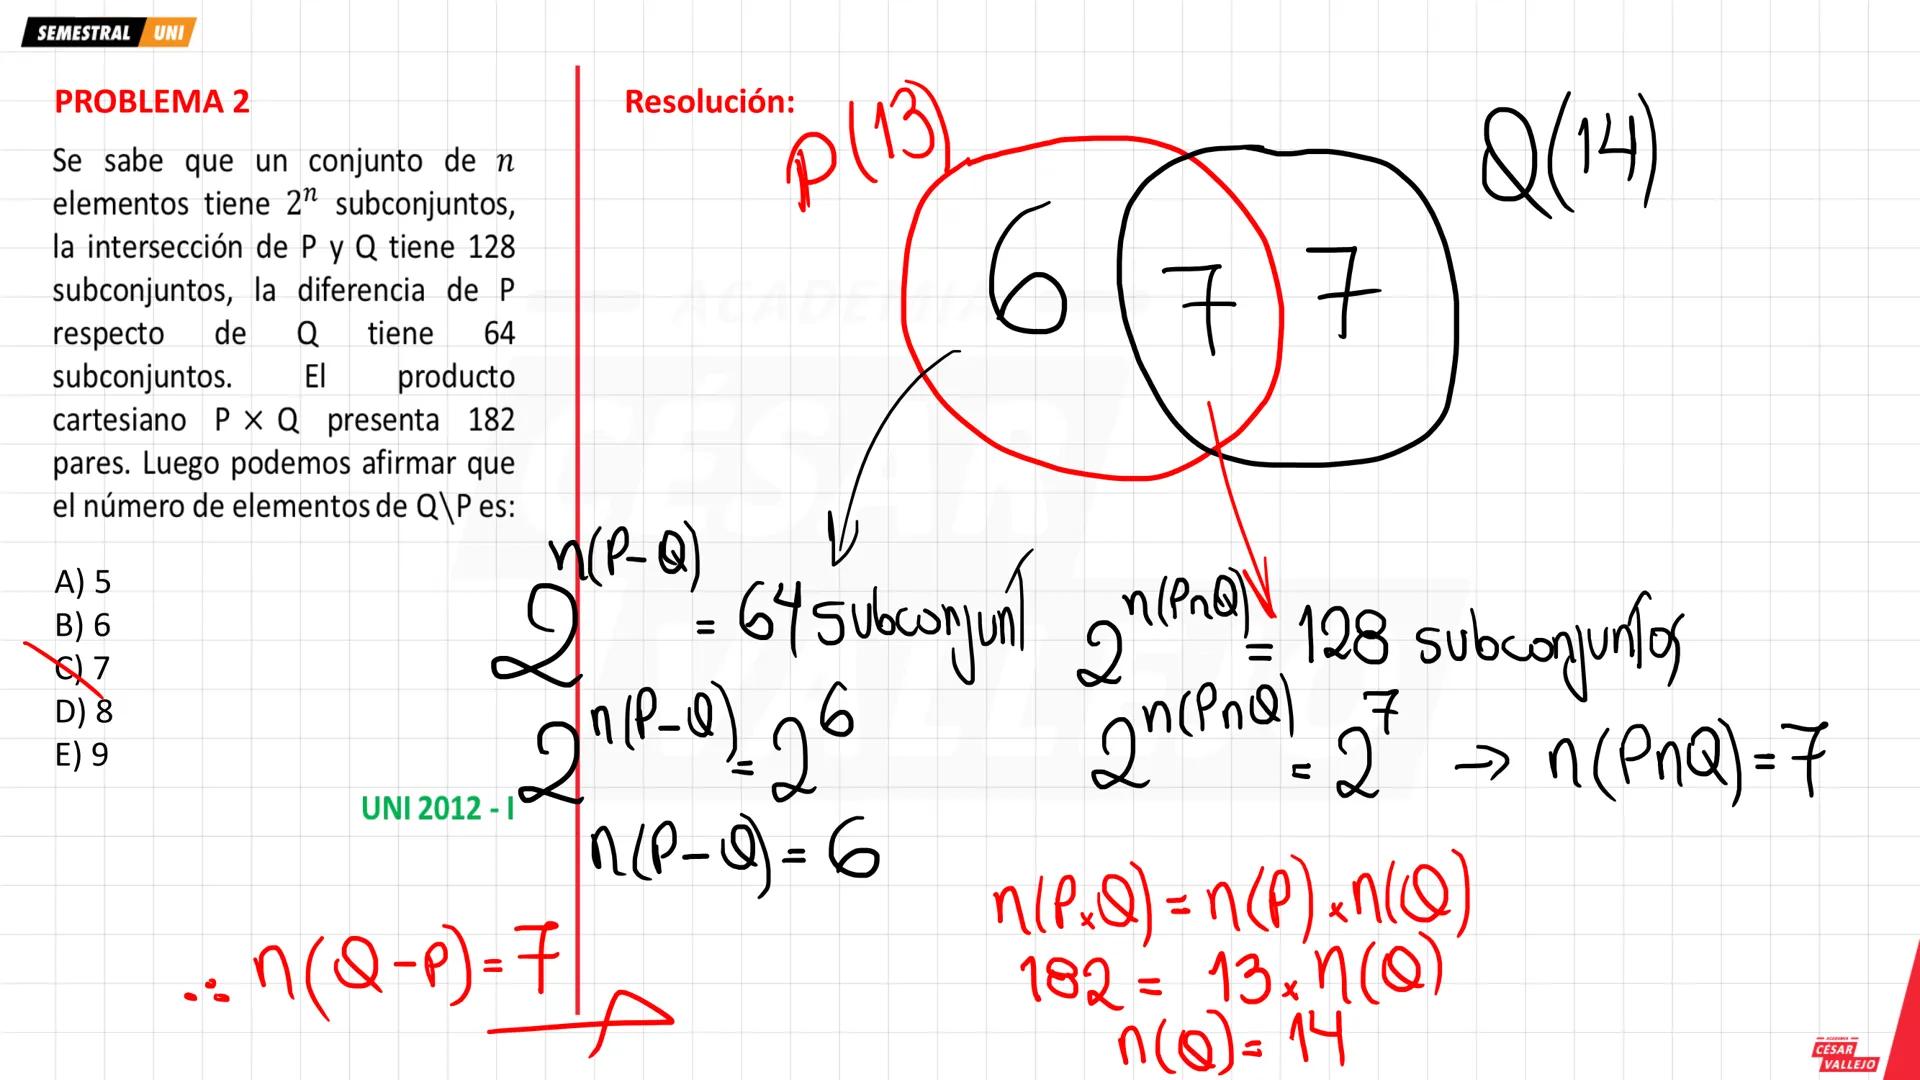 SEMESTRAL UNI
PROBLEMA 2
Se sabe que un conjunto de n
elementos tiene 2ⁿ subconjuntos,
la intersección de P y Q tiene 128
subconjuntos, la diferencia de P
respecto de Q tiene 64
subconjuntos. El producto
cartesiano P × Q presenta 182
pares. Luego podemos afirmar que
el número de elementos de Q\P es:
A) 5
B) 6
C) 7
D) 8
E) 9
UNI 2012 - I
∴ n(Q-P)=7
Resolución:
P(13)
Q(14)
6 7 7
2^n(P-Q) = 64 subconjunt
2^n(P-Q) = 2^6
n(P-Q) = 6
2^n(P∩Q) = 128 subconjuntos
2^n(P∩Q) = 2^7 → n(P∩Q)=7
n(P×Q) = n(P) × n(Q)
182 = 13 × n(Q)
n(Q) = 14
ACADEMIA
CÉSAR
VALLEJO
ACADEMIA
CÉSAR
VALLEJO